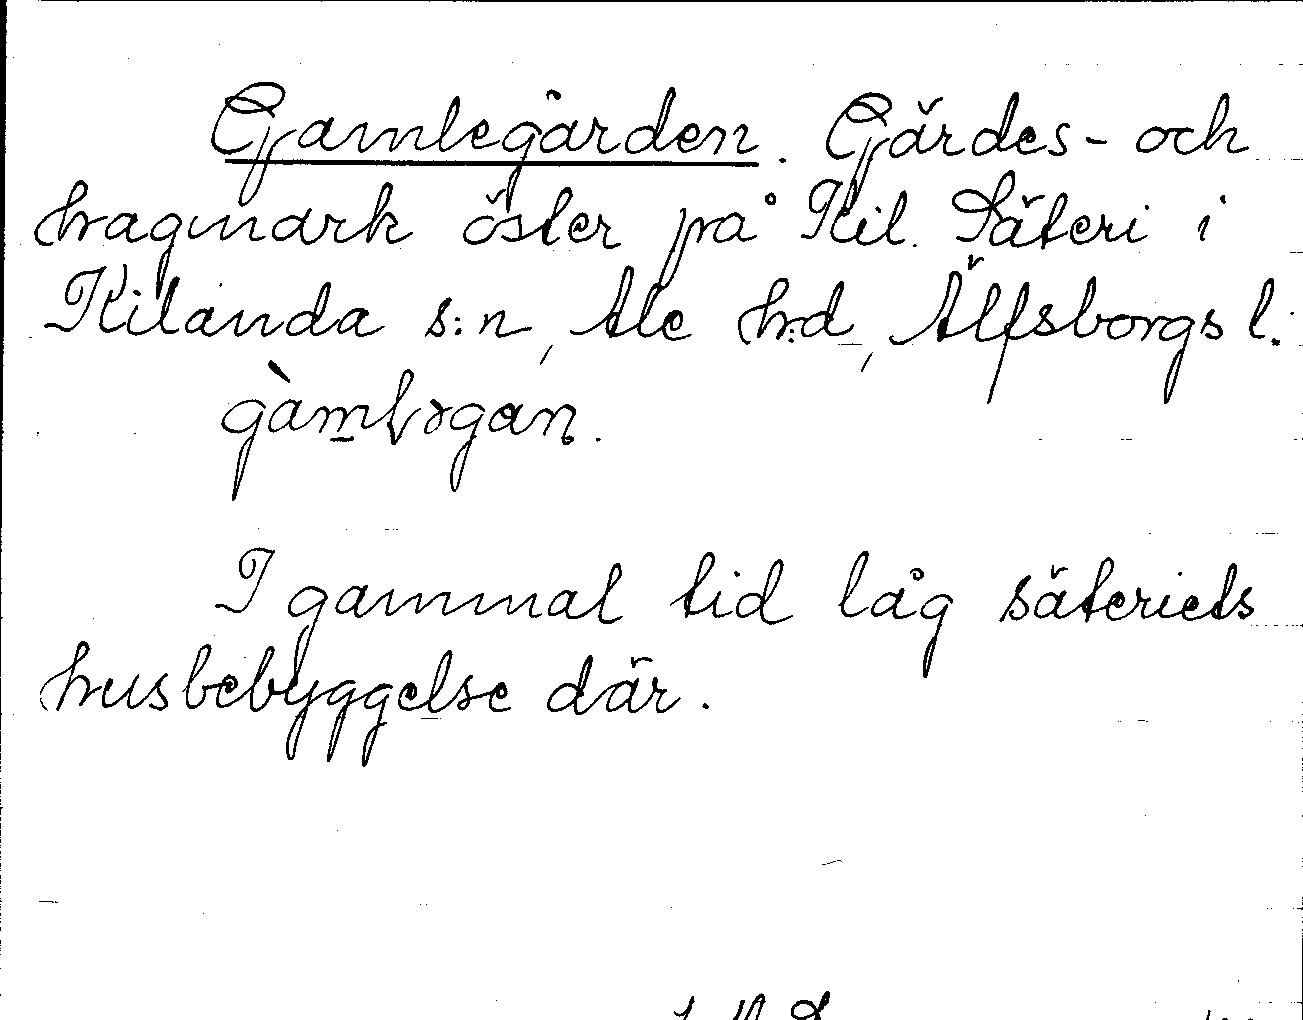 Gamlegården. Gärdes- och
hagmark öster på Kil. Säteri i
Kilanda s:n, Ale h:d, Älfsborgs l.
I gammal tid låg säteriets
husbebyggelse där.